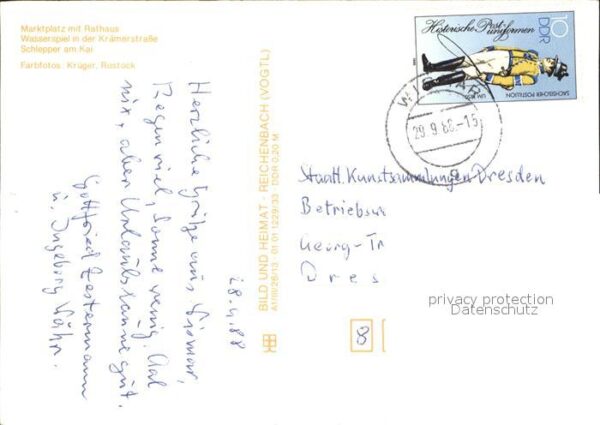 Marktplatz mit Rathaus
Wasserspiel in der Krämerstraße
Schlepper am Kai
Farbfotos: Krüger, Rostock
Historische Post-
uniformen
DDR
10
SÄCHSISCHER POSTILLION
UM 1850
WISMAR
29.9.88.-15
28.9.88
Herzliche Grüße aus Wismar,
Regen viel, Sonne wenig, Aal
nix, aber Urlaubslaune gut.
Gottfried
u. Ingeborg
BILD UND HEIMAT · REICHENBACH (VOGTL)
A1/III/26/13 · 01 01 1229/33 · DDR 0,20 M
Staatl. Kunstsammlungen Dresden
Betriebs
Georg-Tr
Dres
8
privacy protection
Datenschutz